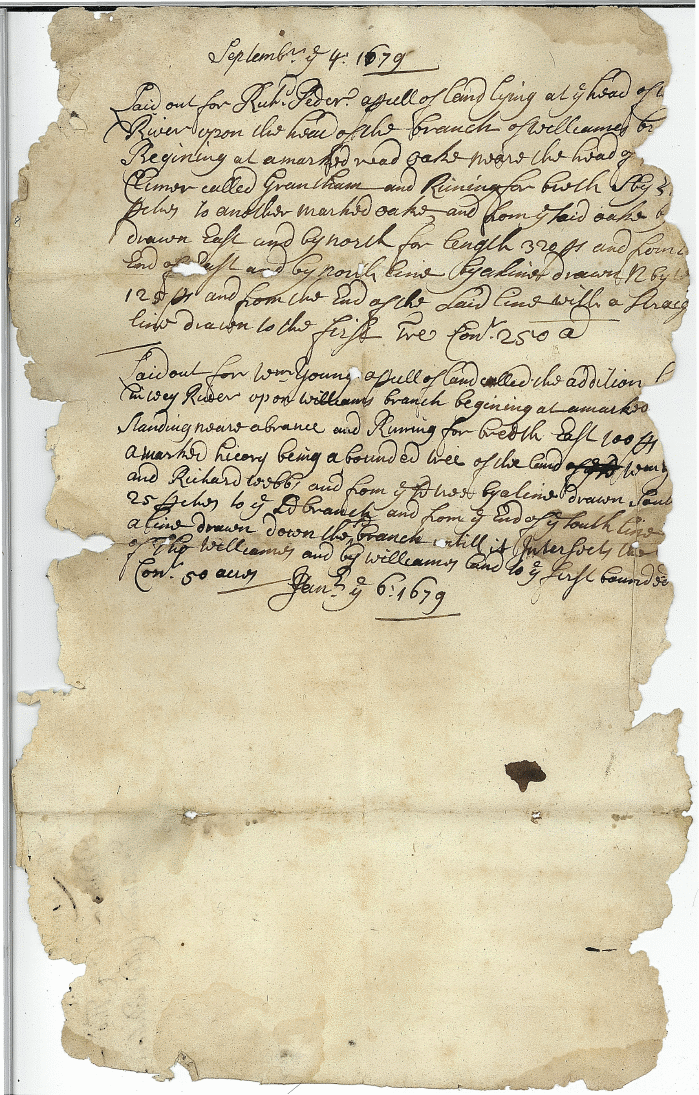 Septembr ye 4: 1679
Laid out for Richd Peder apsell of land lying at ye head of
River upon the head of the branch of williames br
Begining at a marked read oake neare the head of
Climer called Grantham and Runing for breth S by
ptches to another marked oake and from ye said oake
drawn East and by north for length 320 ps and from
End of East and by north line by a line drawn N by
125 ps and from the End of the said line with a straig
line drawn to the first Tree Cont 250 a
Laid out for Wm Young apsell of land called the addition
in wey River upon williams branch begining at a marked
standing neare a brance and Runing for bredth East 100 ps
a marked hicory being a bounded tree of the land
and Richard webbs and from ye sd tree by a line drawn Sout
25 ptches to ye sd branch and from ye End of ye south line
a line drawn down the branch till it Intersects the
of Tho Williames and by williames land to ye first bounded
Cont 50 acres Janr ye 6: 1679